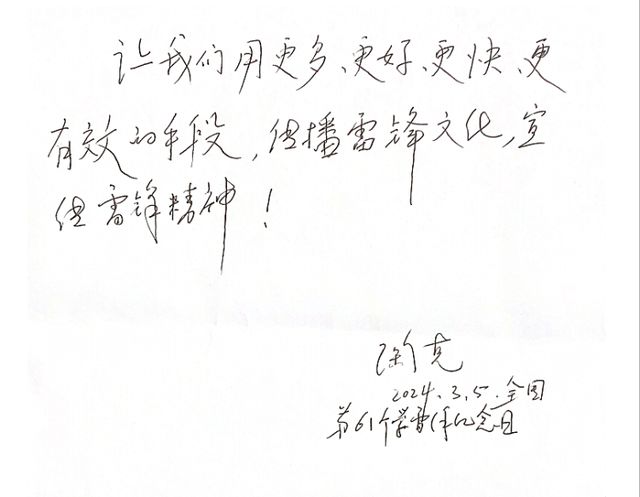 让我们用更多、更好、更快、更
有效的手段,传播雷锋文化,宣
传雷锋精神!
陶克
2024.3.5.全国
第61个学雷锋纪念日